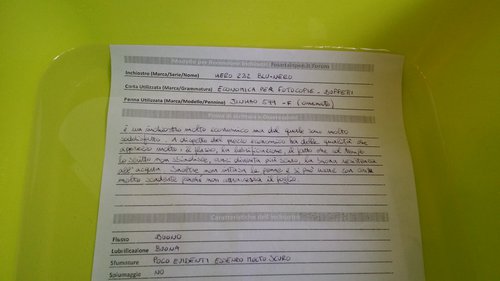 Modello per Recensione Inchiostri Fountainpen.it Forum
Inchiostro (Marca/Serie/Nome) HERO 232 BLU-NERO
Carta Utilizzata (Marca/Grammatura) ECONOMICA PER FOTOCOPIE - BUFFETTI
Penna Utilizzata (Marca/Modello/Pennino) JINHAO 599 - F
Prova di scrittura e Osservazioni
È un inchiostro molto economico ma del quale sono molto
soddisfatto. A dispetto del prezzo economico ha delle qualità che
apprezzo molto: il flusso, la lubrificazione, il fatto che col tempo
lo scritto non sbiadisce, anzi diventa più scuro, la buona resistenza
all'acqua. Inoltre non intasa le penne e si può usare con carta
molto scadente perché non attraversa il foglio.
Caratteristiche dell'inchiostro
Flusso BUONO
Lubrificazione BUONA
Sfumature POCO EVIDENTI ESSENDO MOLTO SCURO
Spiumaggio NO